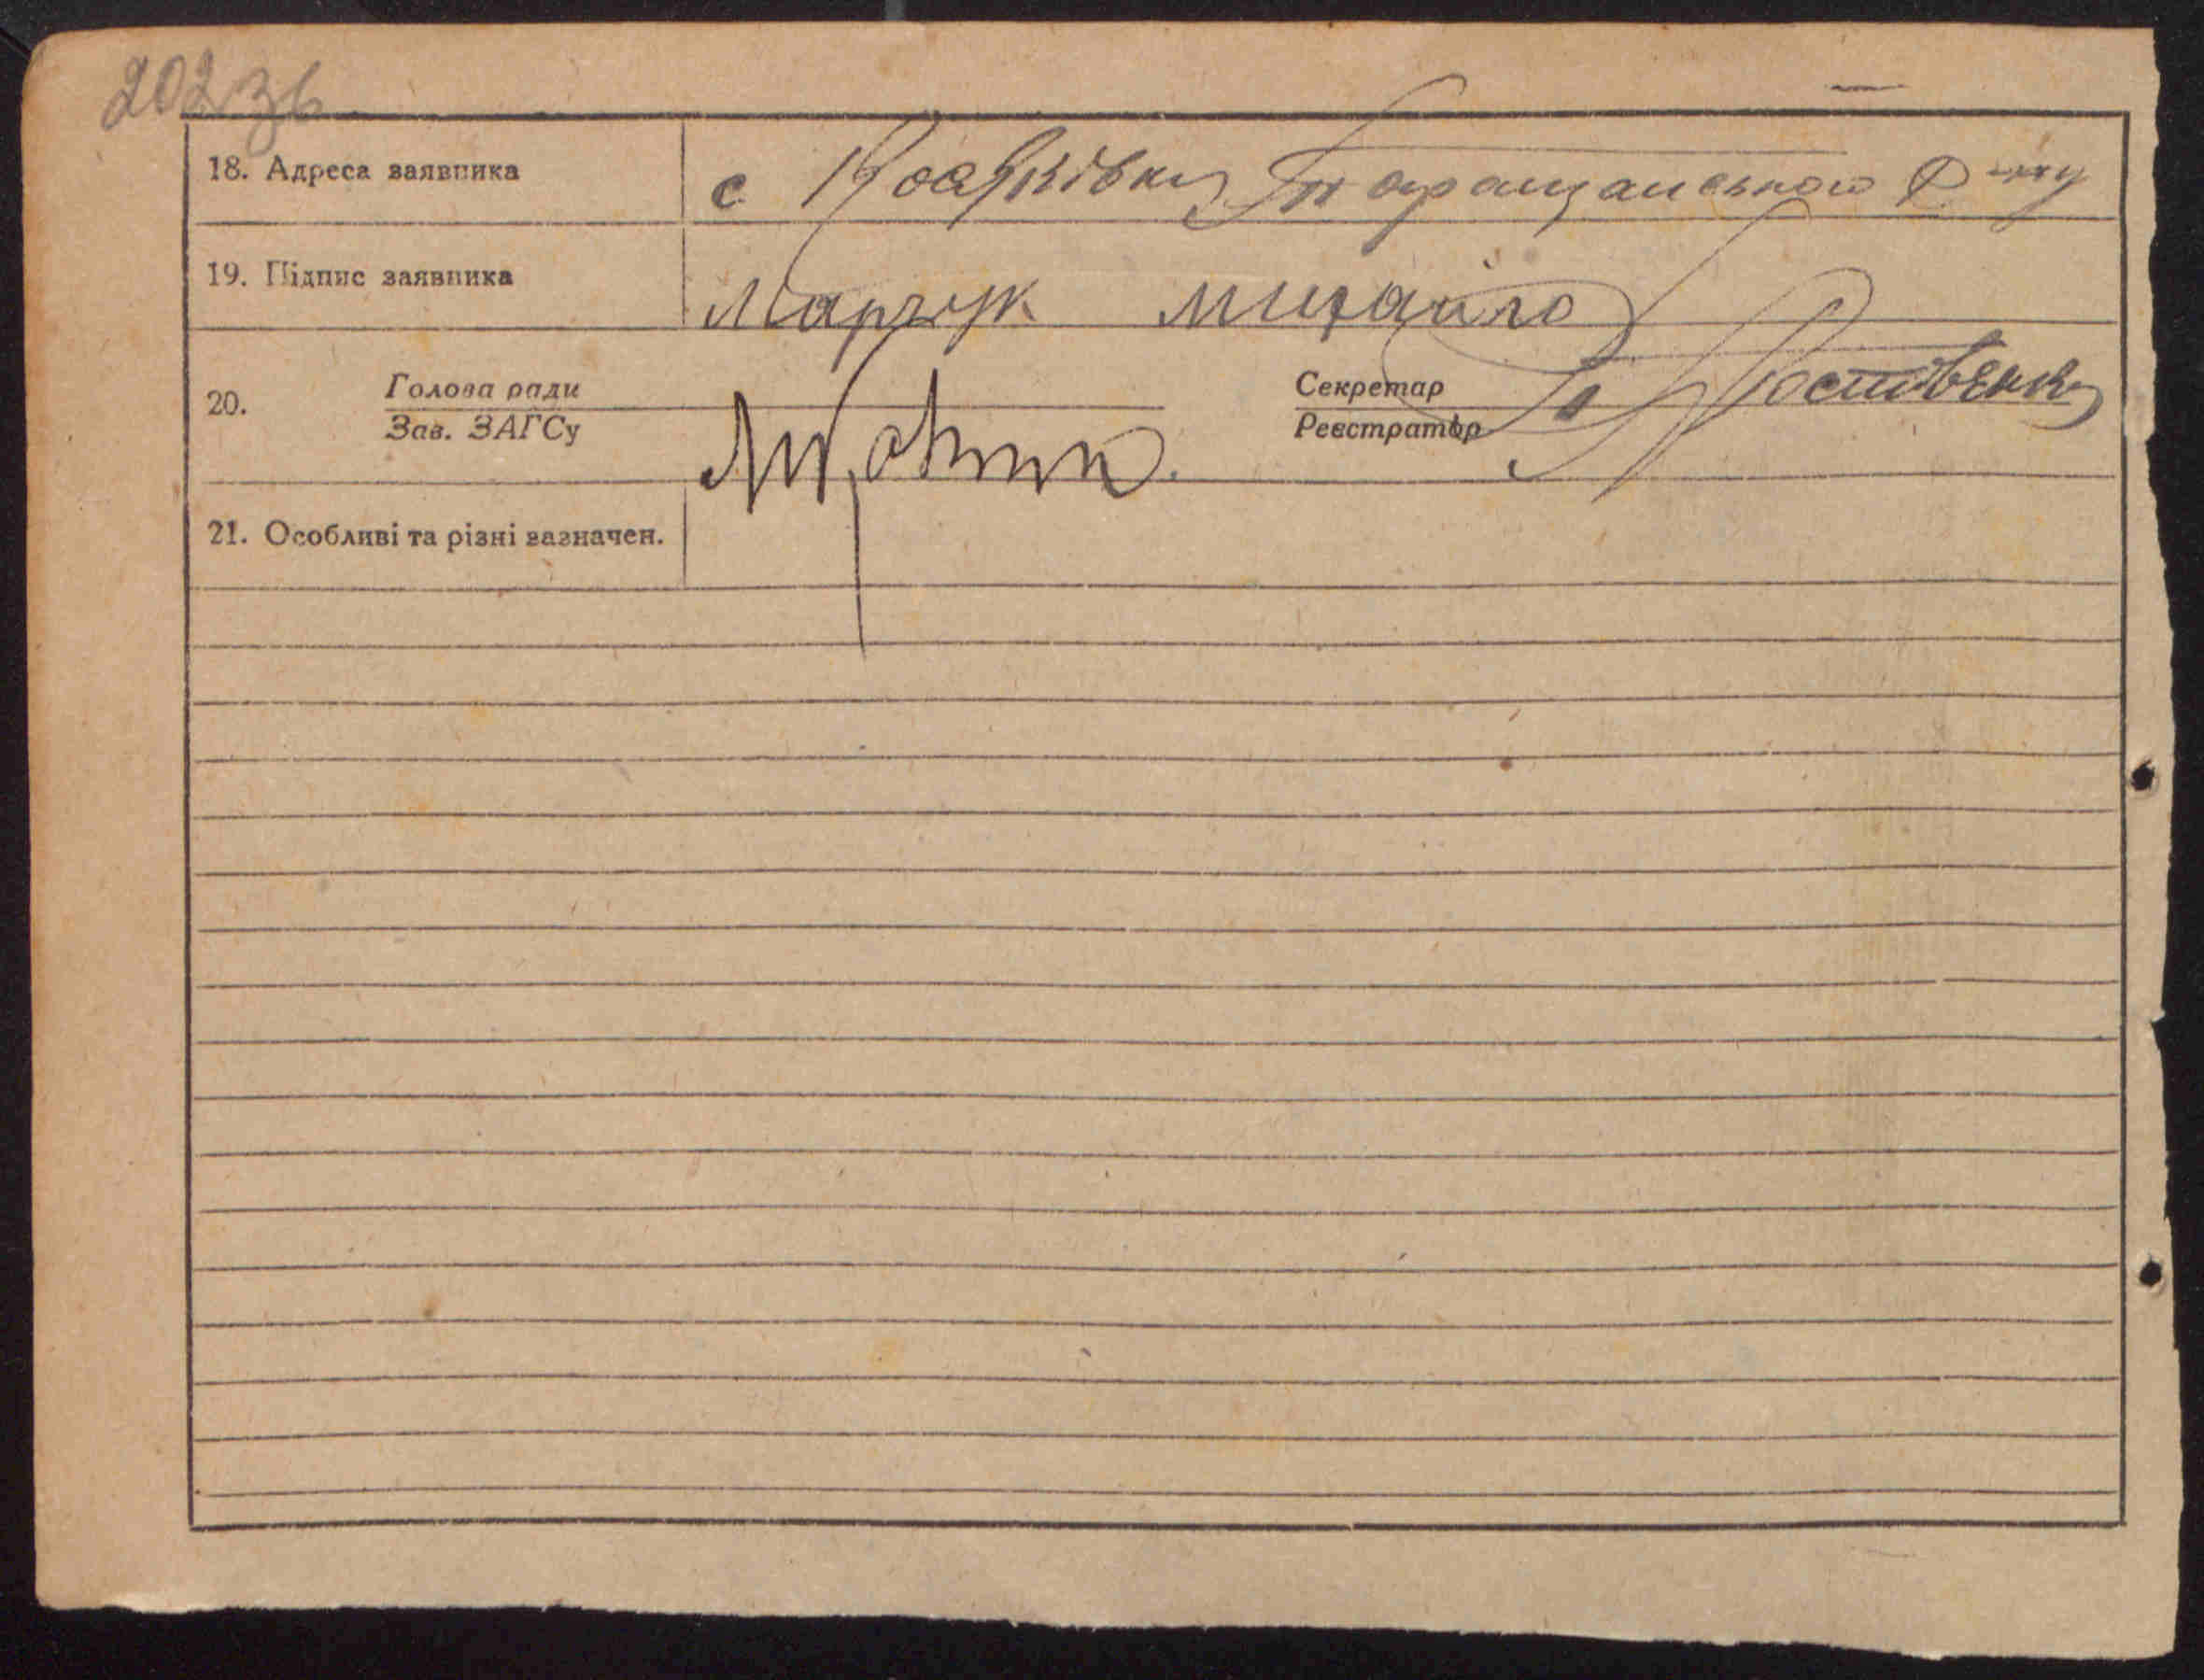 202 зв
18. Адреса заявника с. Косяківка Таращанського р-ну
19. Підпис заявника Марчук Михайло
20. Голова ради Секретар
Зав. ЗАГСу Реєстратор
21. Особливі та різні зазначен.